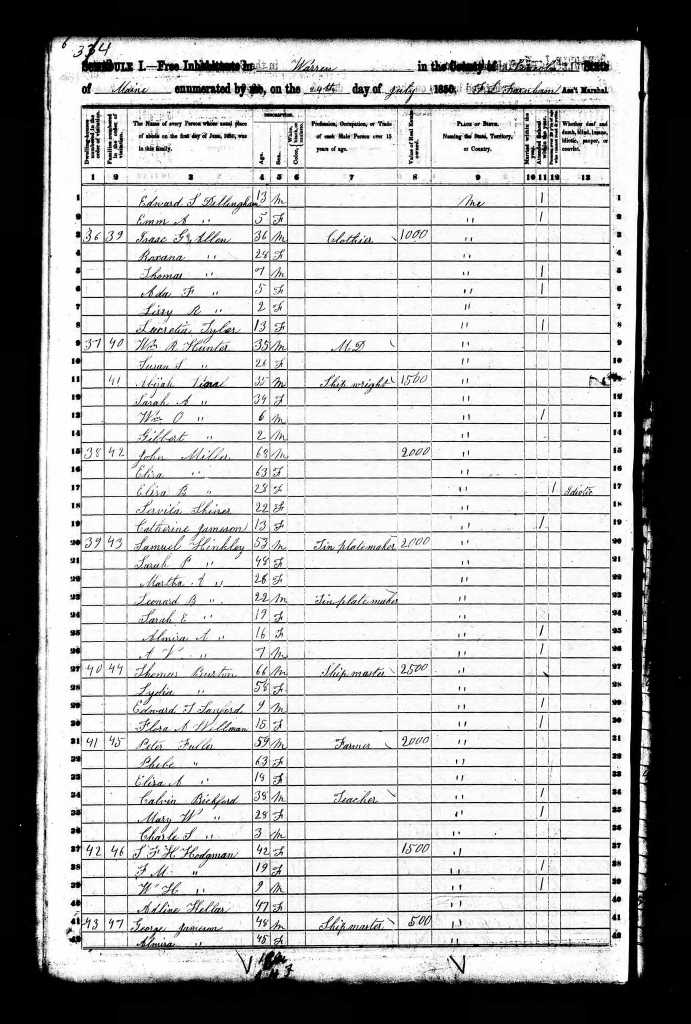 334
SCHEDULE I.—Free Inhabitants in Warren in the County of State
of Maine enumerated by me, on the 24th day of July 1850. Ass't Marshal.
Dwelling-houses numbered in the order of visitation.
Families numbered in the order of visitation.
The Name of every Person whose usual place of abode on the first day of June, 1850, was in this family.
DESCRIPTION.
Age.
Sex.
Color, White, black, or mulatto.
Profession, Occupation, or Trade of each Male Person over 15 years of age.
Value of Real Estate owned.
PLACE OF BIRTH. Naming the State, Territory, or Country.
Married within the year.
Attended School within the year.
Whether deaf and dumb, blind, insane, idiotic, pauper, or convict.
1 2 3 4 5 6 7 8 9 10 11 12 13
1 Edward S Dillingham 13 M Me 1 1
2 Emm A " 5 F " 1 2
3 36 39 Isaac G Allen 36 M Clothier 1000 " 3
4 Roxana " 28 F " 4
5 Thomas " 7 M " 1 5
6 Ada F " 5 F " 1 6
7 Lizzy R " 2 F " 7
8 Lucretia Tyler 13 F " 1 8
9 37 40 Wm R Hunter 35 M M.D " 9
10 Susan S " 26 F " 10
11 41 Abijah 35 M Ship wright 1500 " 11
12 Sarah A " 34 F " 12
13 Wm O " 6 M " 1 13
14 Gilbert " 2 M " 14
15 38 42 John Miller 68 M 2000 " 15
16 Eliza " 63 F " 16
17 Eliza B " 28 F " 1 Idiotic 17
18 22 F " 18
19 Catherine Jameson 13 F " 1 19
20 39 43 Samuel Hinkley 53 M Tin plate maker 2000 " 20
21 Sarah P " 48 F " 21
22 Martha A " 26 F " 22
23 Leonard B " 22 M Tin plate maker " 23
24 Sarah E " 19 F " 24
25 Almira A " 16 F " 1 25
26 A V " 7 M " 1 26
27 40 44 Thomas Burton 66 M Ship master 2500 " 27
28 Lydia " 58 F " 28
29 Edward T 9 M " 1 29
30 Flora A Wellman 15 F " 1 30
31 41 45 Peter Fuller 59 M Farmer 2000 " 31
32 Phebe " 63 F " 32
33 Eliza A " 18 F " 33
34 Calvin Bickford 38 M Teacher " 1 34
35 Mary W " 28 F " 1 35
36 Charle S " 3 M " 36
37 42 46 S F H Hodgman 42 F 1500 " 37
38 F M " 19 F " 1 38
39 W H " 9 M " 1 39
40 Adline Kellar 47 F " 40
41 43 47 George Jameson 48 M Ship master 500 " 41
42 Almira " 45 F " 42